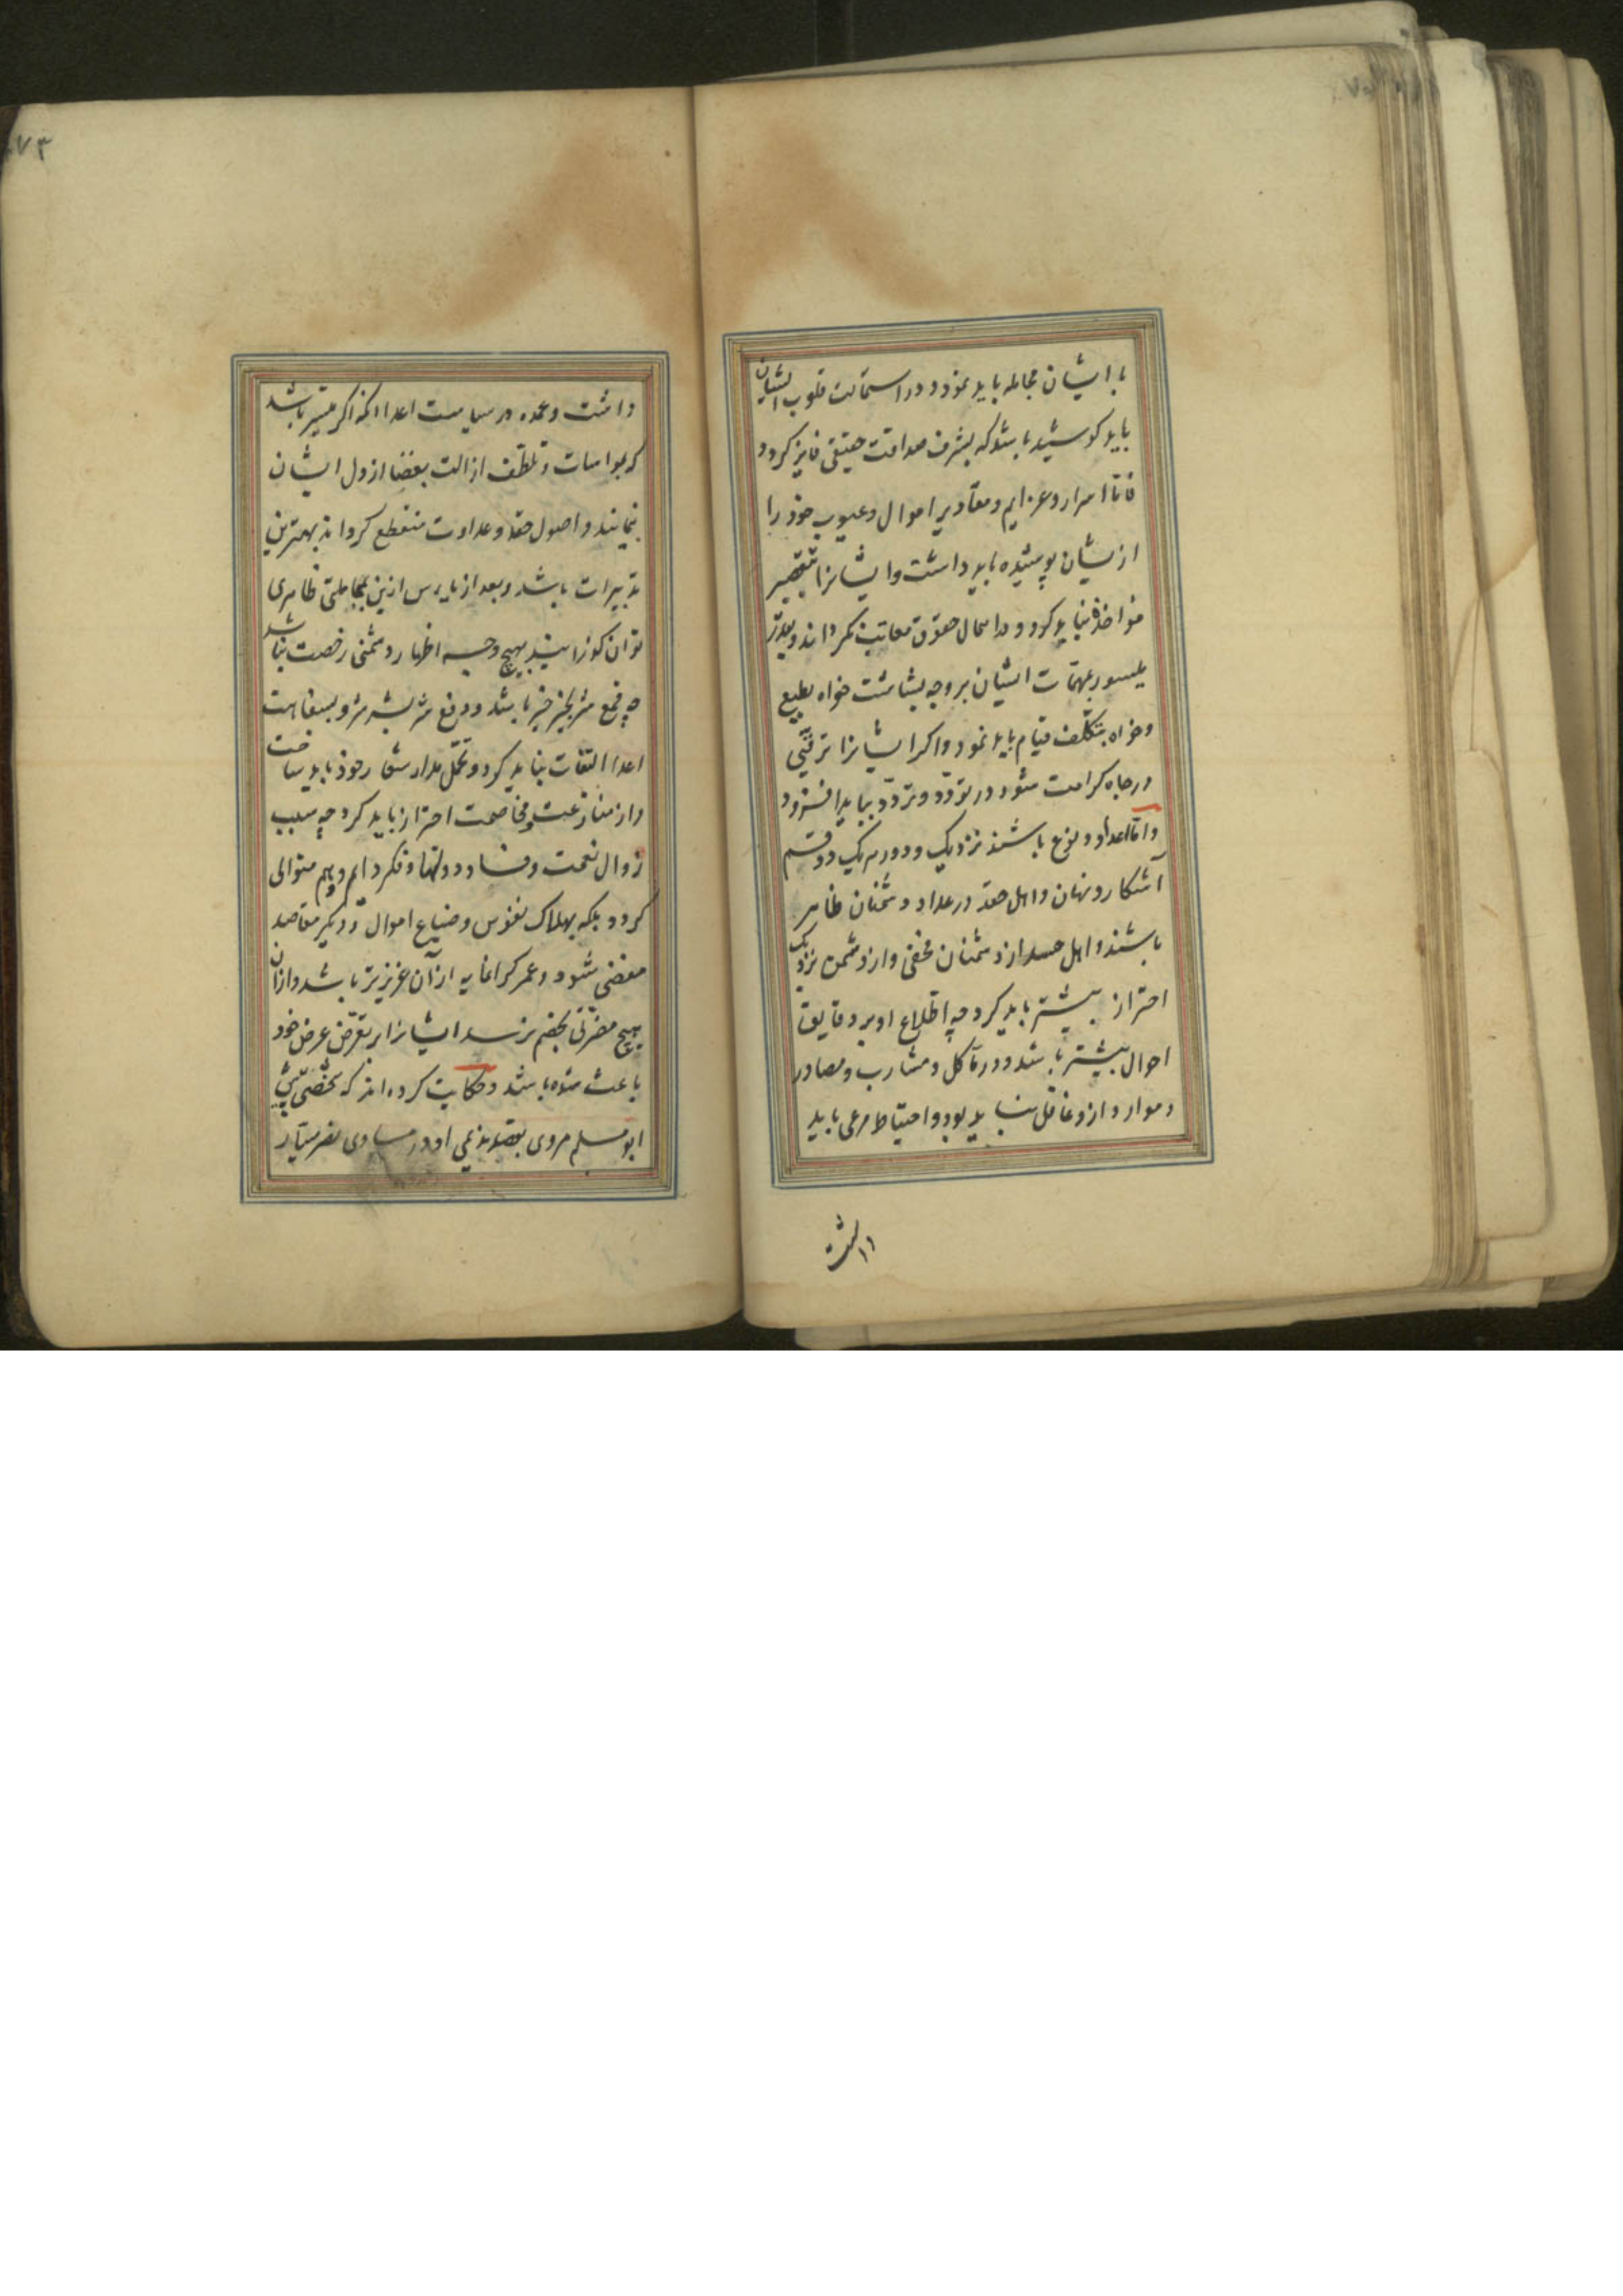 با ایشان مجامله باید نمود و در استمالت قلوب ایشان
باید کوشید باشد که بشرف صداقت حقیقی فایز کردد
فاما اسرار و عزایم و مقادیر اموال و عیوب خوذ را
ازیشان پوشیده باید داشت و ایشانرا بتقصیر
مواخذه نباید کرد و در اهمال حقوق معاتب نکرداند و بقدر
میسور بمهمات ایشان بر وجه بشاشت خواه بطبع
و خواه بتکلف قیام باید نمود و اکر ایشانرا ترقیی
در جاه کرامت شود در تودد و تردد نباید افزود
و اما اعدا دو نوع باشند نزدیک و دور هر یک دو قسم
آشکار و نهان و اهل حقد در عداد دشمنان ظاهر
باشند و اهل حسد از دشمنان مخفی و از دشمن نزدیک
احتراز بیشتر باید کرد چه اطلاع او بر دقایق
احوال بیشتر باشد و در مآکل و مشارب و مصادر
و موارد ازو غافل نباید بود و احتیاط مرعی باید
داشت
داشت و عمده در سیاست اعدا انکه اکر میسر باشد
که بمواسات و تلطف ازالت بغضا از دل ایشان
بنمایند و اصول حقد و عداوت منقطع کردانذ بهترین
تدبیرات باشد و بعد از یاس ازین بمجاملتی ظاهری
توان کذرانید بهیچ وجه اظهار دشمنی رخصت نباشد
چه قمع شر بخیر خیر باشد و دفع شر بشر شر و بسفاهت
اعدا التفات نباید کرد و تحمل مدارا شعار خوذ باید ساخت
و از منازعت و مخاصمت احتراز باید کرد چه سبب
زوال نعمت و فساد دولتها و فکر دایم و هم متوالی
کردد بلکه بهلاک نفوس و ضیاع اموال و دیکر مقاصد
مفضی شود و عمر کرانمایه از آن عزیزتر باشد و ازان
بهیچ مضرتی بخصم نرسد ایشانرا بر تعرض عرض خود
باعث شده باشد و حکایت کرده اند که شخصی پیش
ابو مسلم مروی بقصد ندیمی او در مساوی نصر سیار